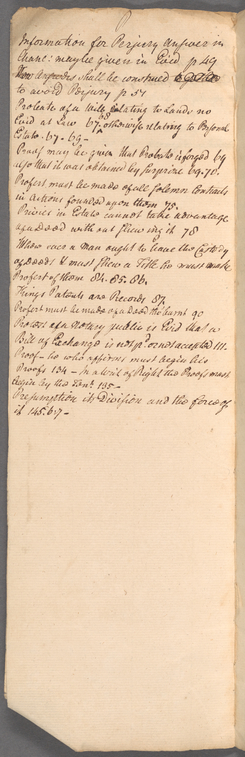 Information for Perjury Answer in
Chanc: may be given in Evid. p 49
How Answers shall be construed together
to avoid Perjury p 51
Probate of a Will relating to Lands no
Evid at Law 67. 68 otherwise relating to Personal
Estate. 67 - 69 -
Proof may be given that Probate is forged 69
also that it was obtained by Surprise 69.70.
Profert must be made of all solemn Contracts
in Actions founded upon them 75.
Privies in Estate cannot take advantage
of a deed without shewing it 78
Where ever a Man ought to have the Custody
of deeds & must shew a Title he must make
Profert of them 84. 85. 86.
Kings Patents are Records 87.
Profert must be made of a deed tho burnt 90
Protest of a Notary public is Evid that a
Bill of Exchange is not pd. or not accepted 111.
Proof - he who affirms must begin his
Proofs 134 - In a Writ of Right the Proofs must
begin by the Tent. 135 -
Presumption its Division and the force of
it 145. 6. 7 -